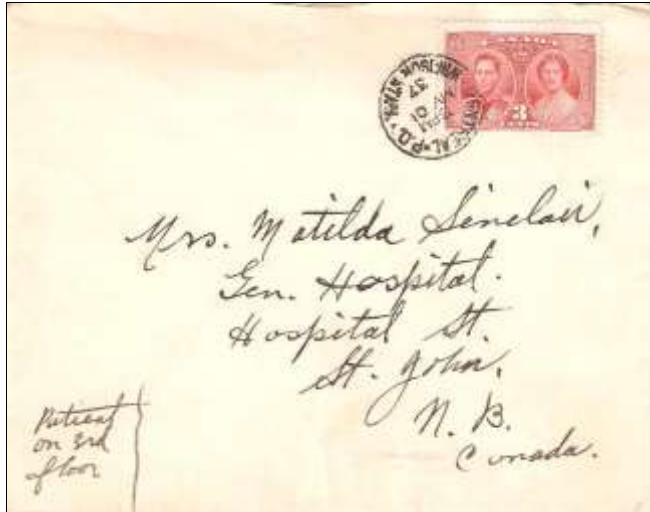 CANADA
3
CENTS
MONTREAL · P.Q.
PM
10
37
Mrs. Matilda Sinclair,
Gen. Hospital.
Hospital St
St. John,
N. B.
Canada.
on 3rd
floor